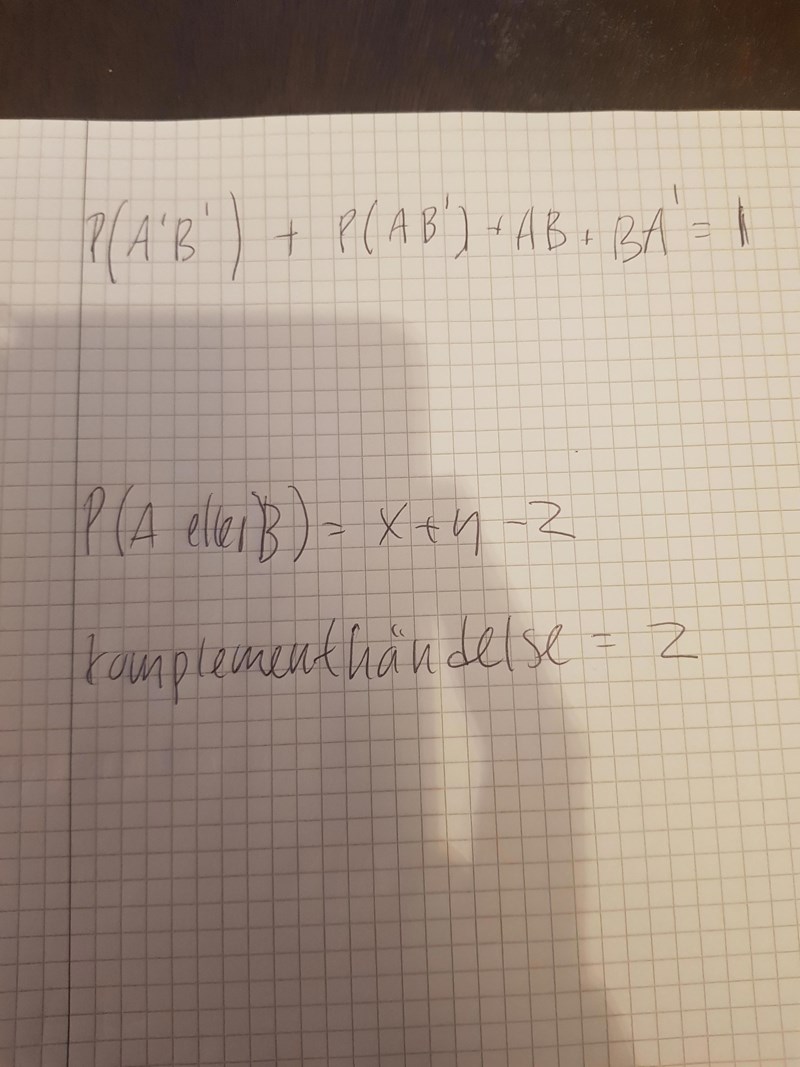 P(A'B') + P(AB') + AB + BA' = 1
P(A eller B) = x + y - z
komplementhändelse = z